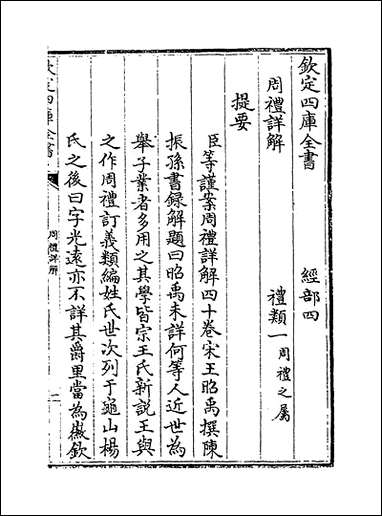 欽定四庫全書　　　經部四
周禮詳解　　　禮類一周禮之屬
提要
臣等謹案周禮詳解四十卷宋王昭禹撰陳
振孫書録解題曰昭禹未詳何等人近世為
舉子業者多用之其學皆宗王氏新說王與
之作周禮訂義類編姓氏世次列于龜山楊
氏之後曰字光逺亦不詳其爵里當為徽欽
欽定四庫全書
周禮詳解